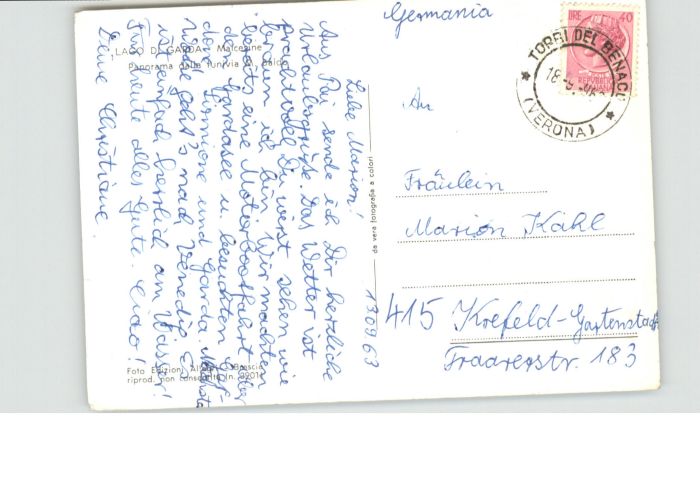 Germania
LIRE 40
TORRI DEL BENACO
(VERONA)
An
Fräulein
Marion Kähl
415 Krefeld-Gartenstadt
Traarerstr. 183
LAGO DI GARDA - Malcesine
Panorama dalla funivia M. Baldo
da vera fotografia a colori
Foto Edizioni
Brescia
riprod. non consentita
13 09 63
Liebe Marion!
Aus Pai sende ich Dir herzliche
Urlaubsgrüße. Das Wetter ist
prachtvoll. Du wirst sehen wie
braun ich bin. Wir machten
bereits eine Motorbootfahrt über
den Gardasee u. besuchten
Sirmione und Garda. Nächste
Woche geht's nach Venedig. Es
ist einfach herrlich am Wasser!
Für heute alles Gute. Ciao!
Deine Christiane.